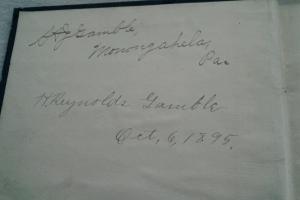 H Gamble,
Monongahela,
Pa.
H. Reynolds Gamble
Oct, 6, 1895.